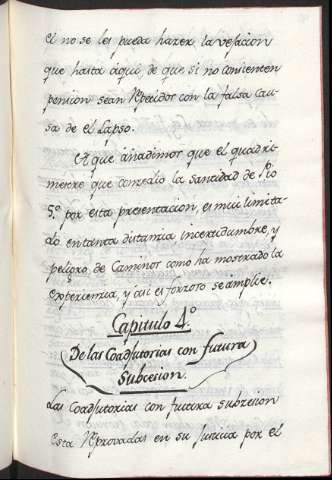 el no se les pueda hazer la vejacion
que hasta aqui de que si no consienten
pension sean repelidos con la falsa cau-
sa de el Lapso.
A que añadimos que el quadri-
mestre que conzedio la santidad de Pio
5.º por esta presentacion, es mui limita-
do en tanta distanzia incertidumbre, y
peligro de Caminos como ha mostrado la
experiencia, y asi es forzoso se amplie.
Capitulo 4.º
De las Coadjutorias con futura
subcesion.
Las Coadjutorias con futura subzesion
esta reprovadas en su justicia por el